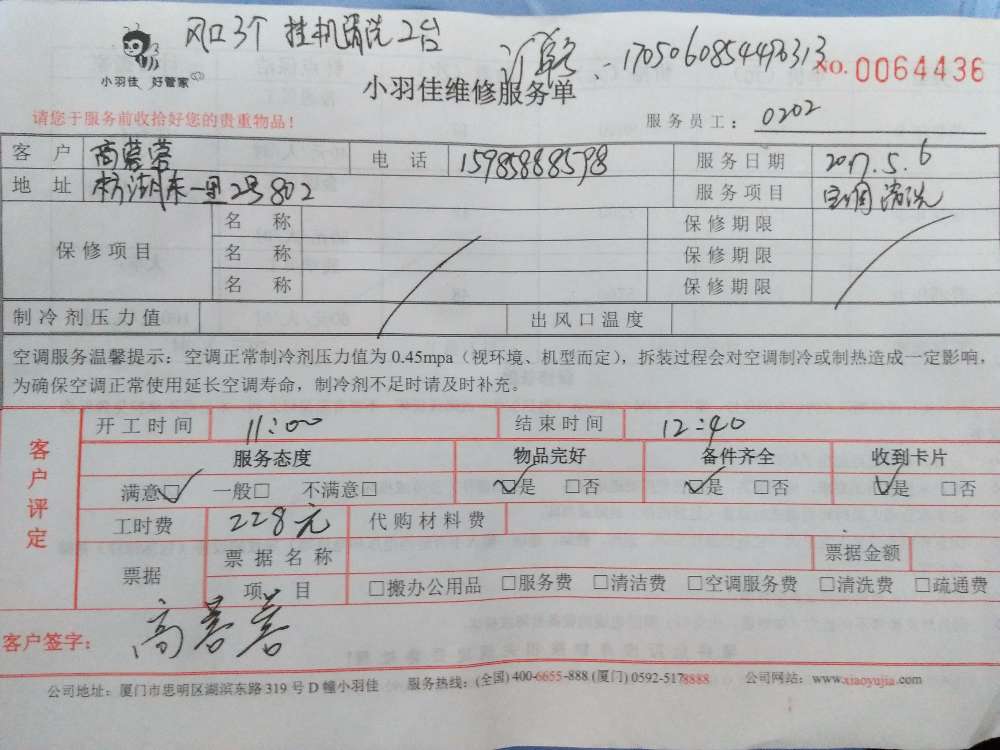 风口3个 挂机清洗2台
1705060854470313
小羽佳 好管家
小羽佳维修服务单
NO. 0064436
请您于服务前收拾好您的贵重物品！
服务员工： 0202
客户 高蓉蓉 电话 15985888598 服务日期 2017.5.6
地址 湖东一里2号802 服务项目 空调清洗
保修项目 名称 保修期限
名称 保修期限
名称 保修期限
制冷剂压力值 出风口温度
空调服务温馨提示：空调正常制冷剂压力值为 0.45mpa（视环境、机型而定），拆装过程会对空调制冷或制热造成一定影响，
为确保空调正常使用延长空调寿命，制冷剂不足时请及时补充。
客户评定
开工时间 11:00 结束时间 12:40
服务态度 物品完好 备件齐全 收到卡片
满意☑ 一般□ 不满意□ ☑是 □否 ☑是 □否 ☑是 □否
工时费 228元 代购材料费
票据 票据名称 票据金额
项目 □搬办公用品 □服务费 □清洁费 □空调服务费 □清洗费 □疏通费
客户签字： 高蓉蓉
公司地址：厦门市思明区湖滨东路 319 号 D 幢小羽佳 服务热线：(全国) 400-6655-888 (厦门) 0592-5178888 公司网站：www.xiaoyujia.com